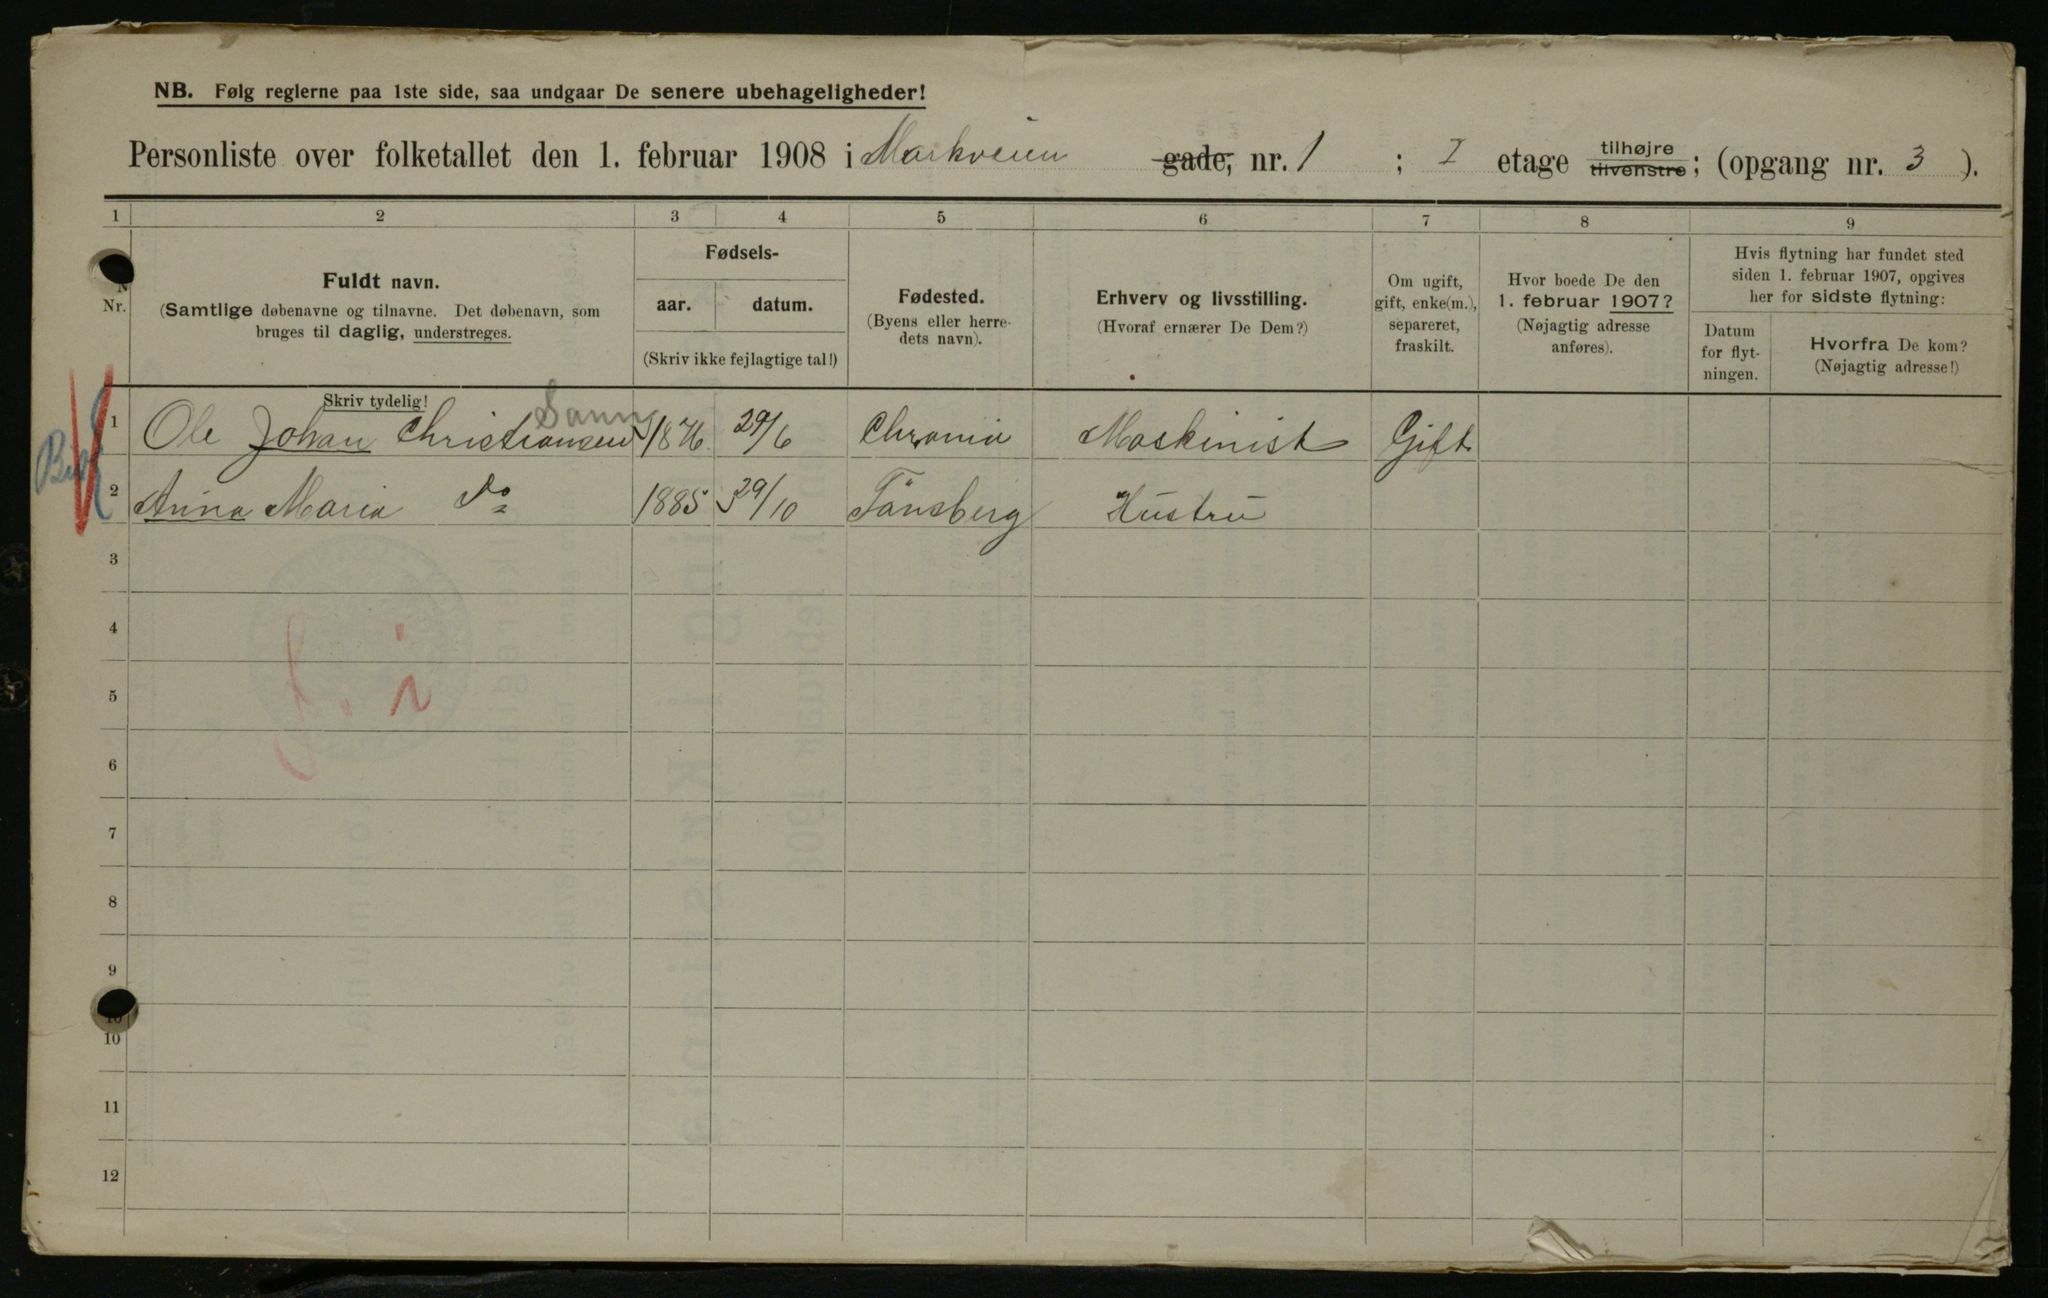 NB. Følg reglerne paa 1ste side, saa undgaar De senere ubehageligheder!
Personliste over folketallet den 1. februar 1908 i Markveien gade, nr. 1 ; I etage tilhøjre tilvenstre ; (opgang nr. 3 ).
1 2 3 4 5 6 7 8 9
Nr.
Fuldt navn.
(Samtlige døbenavne og tilnavne. Det døbenavn, som
bruges til daglig, understreges.
Skriv tydelig!
Fødsels-
aar. datum.
(Skriv ikke fejlagtige tal!)
Fødested.
(Byens eller herre-
dets navn).
Erhverv og livsstilling.
(Hvoraf ernærer De Dem?)
Om ugift,
gift, enke(m.),
separeret,
fraskilt.
Hvor boede De den
1. februar 1907?
(Nøjagtig adresse
anføres).
Hvis flytning har fundet sted
siden 1. februar 1907, opgives
her for sidste flytning:
Datum
for flyt-
ningen.
Hvorfra De kom?
(Nøjagtig adresse!)
1 Ole Johan Christiansen 1876 29/6 Chrania Maskinist Gift
2 Anna Maria do 1885 29/10 Tönsberg Hustru
3
4
5
6
7
8
9
10
10
11
12